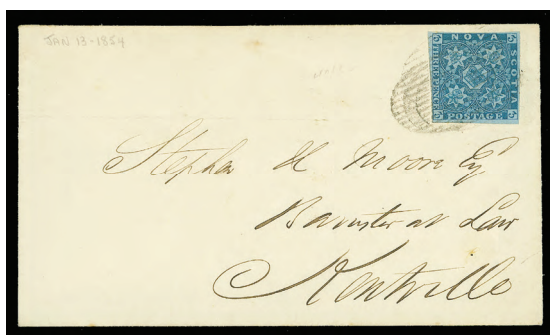 JAN 13-1854
NOVA
SCOTIA
THREE PENCE
POSTAGE
Stephen H Moore Eq.
Barrister at Law
Kentville